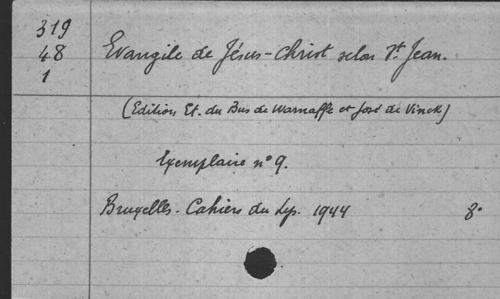 319
48 Evangile de Jésus-Christ selon St. Jean.
1
(Edition Et. du Bus de Warnaffe et José de Vinck)
Exemplaire n° 9.
Bruxelles. Cahiers du Lys. 1944 8°